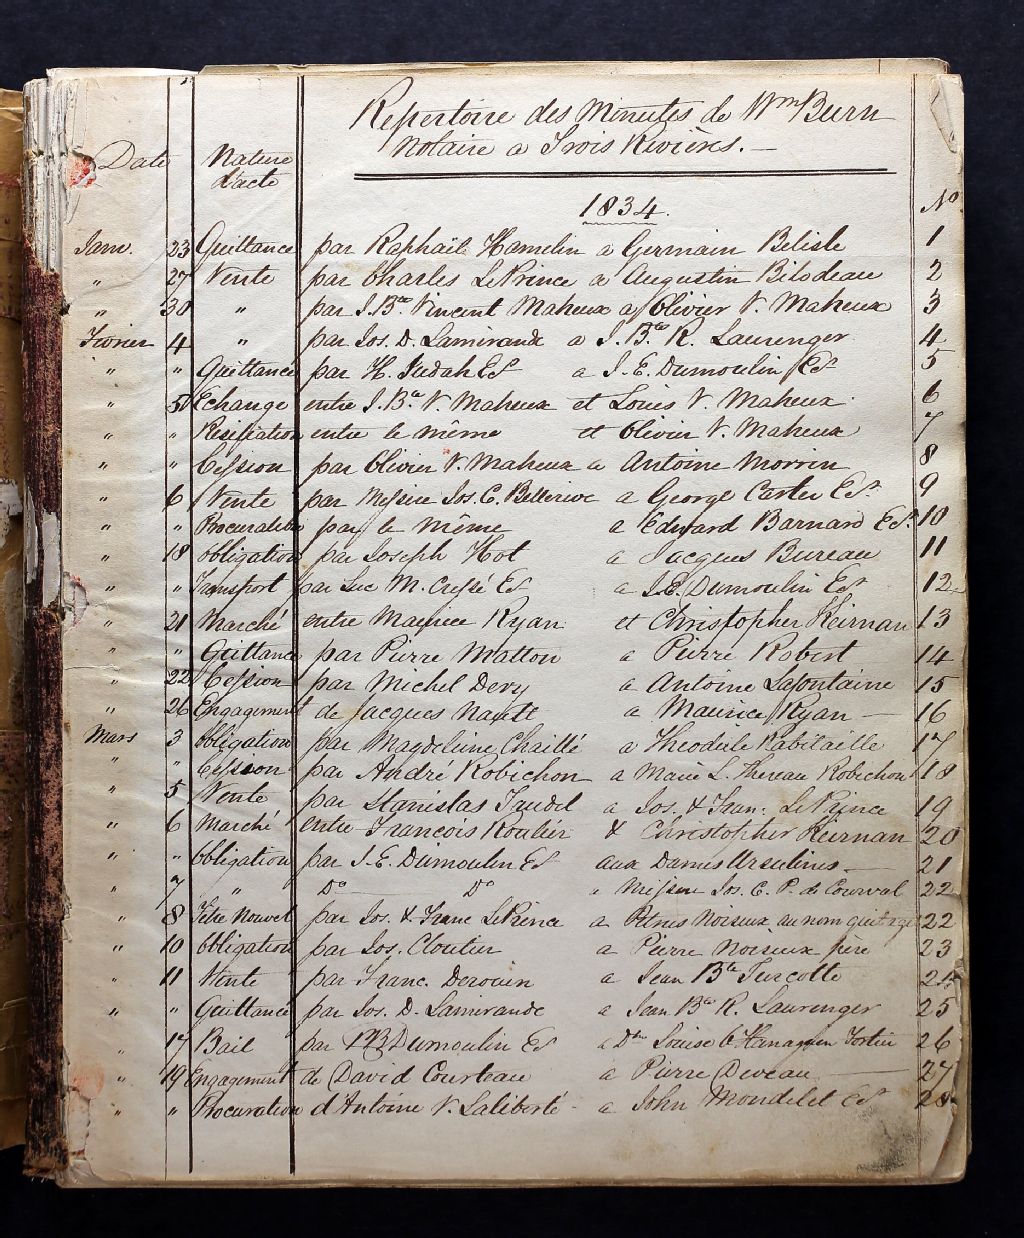 Repertoire des Minutes de Wm Burn
Notaire a Trois Rivièrs. —
Date Nature d'acte 1834. No
Janv. 23 Quittance par Raphaile Hamelin a Germain Belisle 1
" 27 Vente par Charles LePrince a Augustin Bilodeau 2
" 30 " par J. Bte Vincent Maheux a Olivier V. Maheux 3
Fevrier 4 " par Jos. D. Lamirande a J. Bte R. Laurenger 4
" " Quittance par H. Judah Es a J. E. Dumoulin Es 5
" 5 Echange entre J. Bte V. Maheux et Louis V. Maheux 6
" " Resiliation entre le même et Olivier V. Maheux 7
" " Cession par Olivier V. Maheux a Antoine Morrin 8
" 6 Vente par Messire Jos. C. Bellerive a George Carter Es 9
" " Procuration par le même a Edward Barnard Es. 10
" 18 Obligation par Joseph Hot a Jacques Bureau 11
" " Transport par Luc M. Cressé Es a J.E. Dumoulin Es 12
" 21 Marché entre Maurice Ryan et Christopher Keirnan 13
" " Quittance par Pierre Matton a Pierre Robert 14
" 22 Cession par Michel Dery a Antoine Lafontaine 15
" 26 Engagement de Jacques Nault a Maurice Ryan — 16
Mars 3 Obligation par Magdeleine Chaillé a Theodule Rabitaille 17
" " Cession par André Robichon a Marie L. Thereau Robichon 18
" 5 Vente par Stanislas Trudel a Jos. & Fran: LePrince 19
" 6 Marché entre Francois Roulier & Christopher Keirnan 20
" " Obligation par J.E. Dumoulin Es aux Dames Ursulines — 21
" 7 " Do — Do a Messire Jos. C. P. de Courval 22
" 8 Titre Nouvel par Jos. & Franc LePrince a Petrus Noiseux au nom quil agit 22
" 10 Obligation par Jos. Cloutier a Pierre Noiseux père 23
" 11 Vente par Franc. Derouin a Jean Bte Turcotte 24
" " Quittance par Jos. D. Lamirande a Jean Bte R. Laurenger 25
" 17 Bail par PB Dumoulin Es a Dme Louise Fortin 26
" 19 Engagement de David Courteau a Pierre Deveau — 27
" " Procuration d'Antoine V. Laliberté - a John Mondelet Es 28